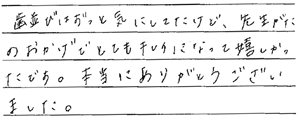 歯並びはずっと気にしてたけど、先生がた
のおかげでとてもキレイになって嬉しかっ
たです。本当にありがとうござい
ました。